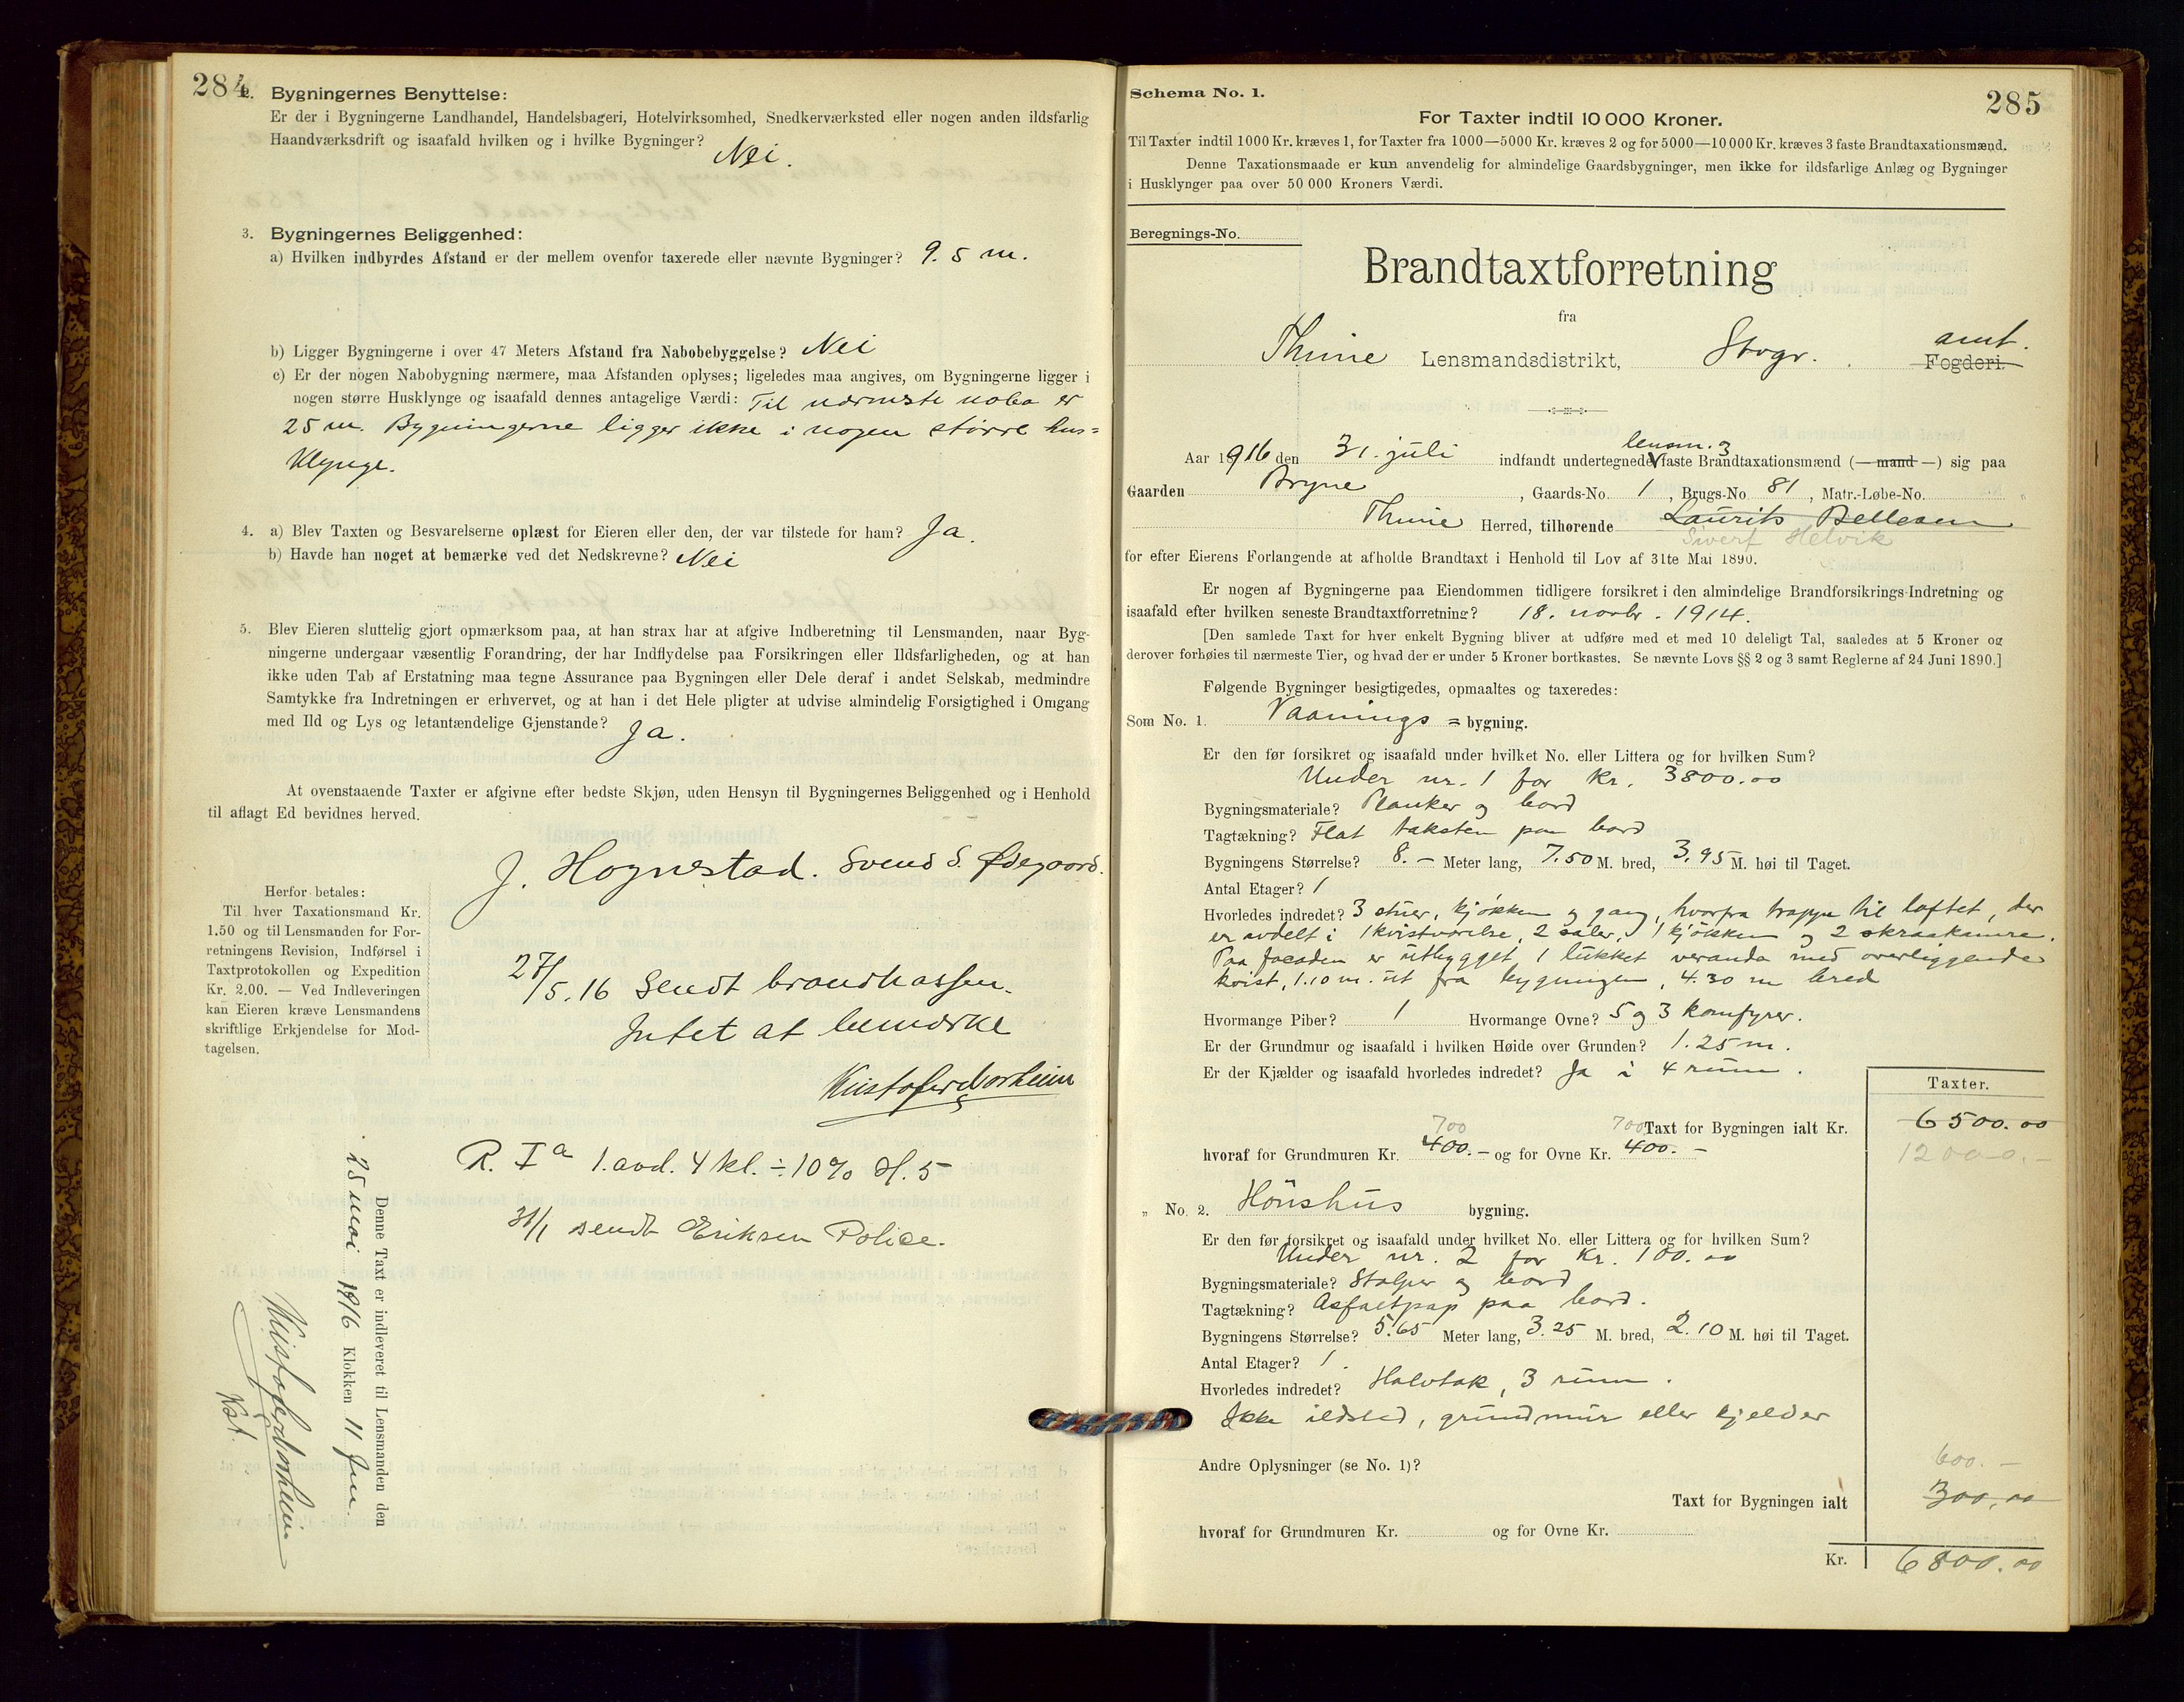 284
2. Bygningernes Benyttelse:
Er der i Bygningerne Landhandel, Handelsbageri, Hotelvirksomhed, Snedkerværksted eller nogen anden ildsfarlig
Haandværksdrift og isaafald hvilken og i hvilke Bygninger?
Nei.
3. Bygningernes Beliggenhed:
a) Hvilken indbyrdes Afstand er der mellem ovenfor taxerede eller nævnte Bygninger? 9.5 m.
b) Ligger Bygningerne i over 47 Meters Afstand fra Nabobebyggelse? Nei
c) Er der nogen Nabobygning nærmere, maa Afstanden oplyses; ligeledes maa angives, om Bygningerne ligger i
nogen større Husklynge og isaafald dennes antagelige Værdi: Til nærmeste nabo er
25 m. Bygningerne ligger ikke i nogen större hus=
klynge.
4. a) Blev Taxten og Besvarelserne oplæst for Eieren eller den, der var tilstede for ham? Ja.
b) Havde han noget at bemærke ved det Nedskrevne? Nei
5. Blev Eieren sluttelig gjort opmærksom paa, at han strax har at afgive Indberetning til Lensmanden, naar Byg-
ningerne undergaar væsentlig Forandring, der har Indflydelse paa Forsikringen eller Ildsfarligheden, og at han
ikke uden Tab af Erstatning maa tegne Assurance paa Bygningen eller Dele deraf i andet Selskab, medmindre
Samtykke fra Indretningen er erhvervet, og at han i det Hele pligter at udvise almindelig Forsigtighed i Omgang
med Ild og Lys og letantændelige Gjenstande? Ja.
At ovenstaaende Taxter er afgivne efter bedste Skjøn, uden Hensyn til Bygningernes Beliggenhed og i Henhold
til aflagt Ed bevidnes herved.
J. Hognestad. Svend S. Ødegaard.
Herfor betales:
Til hver Taxationsmand Kr.
1.50 og til Lensmanden for For-
retningens Revision, Indførsel i
Taxtprotokollen og Expedition
Kr. 2.00. — Ved Indleveringen
kan Eieren kræve Lensmandens
skriftlige Erkjendelse for Mod-
tagelsen.
27/5.16 Sendt brandkassen.
Intet at bemærke
R. Ia 1. avd. 4 kl. ÷ 10% H. 5
31/1 sendt Eriksen Police.
Denne Taxt er indleveret til Lensmanden den
25 mai 1916 Klokken 11 fm.
Kst.
Schema No. 1.
285
For Taxter indtil 10 000 Kroner.
Til Taxter indtil 1000 Kr. kræves 1, for Taxter fra 1000—5000 Kr. kræves 2 og for 5000—10000 Kr. kræves 3 faste Brandtaxationsmænd.
Denne Taxationsmaade er kun anvendelig for almindelige Gaardsbygninger, men ikke for ildsfarlige Anlæg og Bygninger
i Husklynger paa over 50 000 Kroners Værdi.
Beregnings-No.
Brandtaxtforretning
fra
amt.
Thime Lensmandsdistrikt, Stvgr. Fogderi.
lensm. 3
Aar 1916 den 31. juli indfandt undertegnede faste Brandtaxationsmænd (—mand—) sig paa
Gaarden Bryne, Gaards-No. 1, Brugs-No. 81, Matr.-Løbe-No.
Thime Herred, tilhørende Laurits Bellesen
Sivert Helvik
for efter Eierens Forlangende at afholde Brandtaxt i Henhold til Lov af 31te Mai 1890.
Er nogen af Bygningerne paa Eiendommen tidligere forsikret i den almindelige Brandforsikrings-Indretning og
isaafald efter hvilken seneste Brandtaxtforretning? 18. novbr. 1914.
[Den samlede Taxt for hver enkelt Bygning bliver at udføre med et med 10 deleligt Tal, saaledes at 5 Kroner og
derover forhøies til nærmeste Tier, og hvad der er under 5 Kroner bortkastes. Se nævnte Lovs §§ 2 og 3 samt Reglerne af 24 Juni 1890.]
Følgende Bygninger besigtigedes, opmaaltes og taxeredes:
Som No. 1. Vaanings = bygning.
Er den før forsikret og isaafald under hvilket No. eller Littera og for hvilken Sum?
Under nr. 1 for kr. 3800.00
Bygningsmateriale? Planker og bord
Tagtækning? Flat taksten paa bord
Bygningens Størrelse? 8.— Meter lang, 7.50 M. bred, 3.95 M. høi til Taget.
Antal Etager? 1
Hvorledes indredet? 3 stuer, kjökken og gang, hvorfra trappe til loftet, der
er avdelt i 1 kvistværelse, 2 saler, 1 kjökken og 2 skraakamre.
Paa facaden er utbygget 1 lukket veranda med overliggende
kvist, 1.10 m. ut fra bygningen, 4.30 m bred
Hvormange Piber? 1 Hvormange Ovne? 5 og 3 komfyrer.
Er der Grundmur og isaafald i hvilken Høide over Grunden? 1.25 m.
Er der Kjælder og isaafald hvorledes indredet? Ja i 4 rum.
Taxter.
700 700 Taxt for Bygningen ialt Kr. 6500.00
hvoraf for Grundmuren Kr. 400.— og for Ovne Kr. 400.— 12000.—
„ No. 2. Hönshus bygning.
Er den før forsikret og isaafald under hvilket No. eller Littera og for hvilken Sum?
Under nr. 2 for kr. 100.00
Bygningsmateriale? Stolper og bord
Tagtækning? Asfaltpap paa bord.
Bygningens Størrelse? 5.65 Meter lang, 3.25 M. bred, 2.10 M. høi til Taget.
Antal Etager? 1.
Hvorledes indredet? Halvtak, 3 rum.
Ikke ildsted, grundmur eller kjelder
Andre Oplysninger (se No. 1)? 600.—
Taxt for Bygningen ialt 300,00
hvoraf for Grundmuren Kr. og for Ovne Kr.
Kr. 6800.00